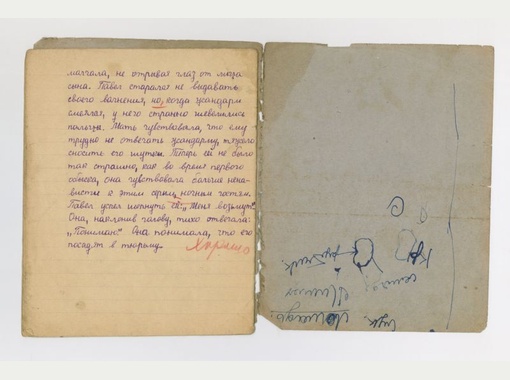 молчала, не отрывая глаз от лица
сына. Павел старался не выдавать
своего волнения, но, когда жандарм
смеялся, у него странно шевелились
пальцы. Мать чувствовала, что ему
трудно не отвечать жандарму, тяжело
сносить его шутки. Теперь ей не было
так страшно, как во время первого
обыска, она чувствовала больше нена-
висти к этим серым, ночным гостям.
Павел успел шепнуть ей: „Меня возьмут".
Она, наклонив голову, тихо отвечала:
„Понимаю." Она понимала, что его
посадят в тюрьму.
Хорошо